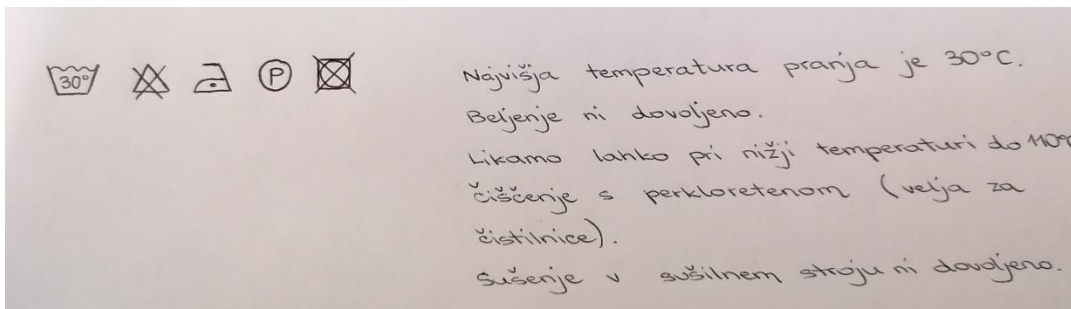 30° P
Najvišja temperatura pranja je 30°C.
Beljenje ni dovoljeno.
Likamo lahko pri nižji temperaturi do 110°C
čiščenje s perkloretenom (velja za
čistilnice).
Sušenje v sušilnem stroju ni dovoljeno.